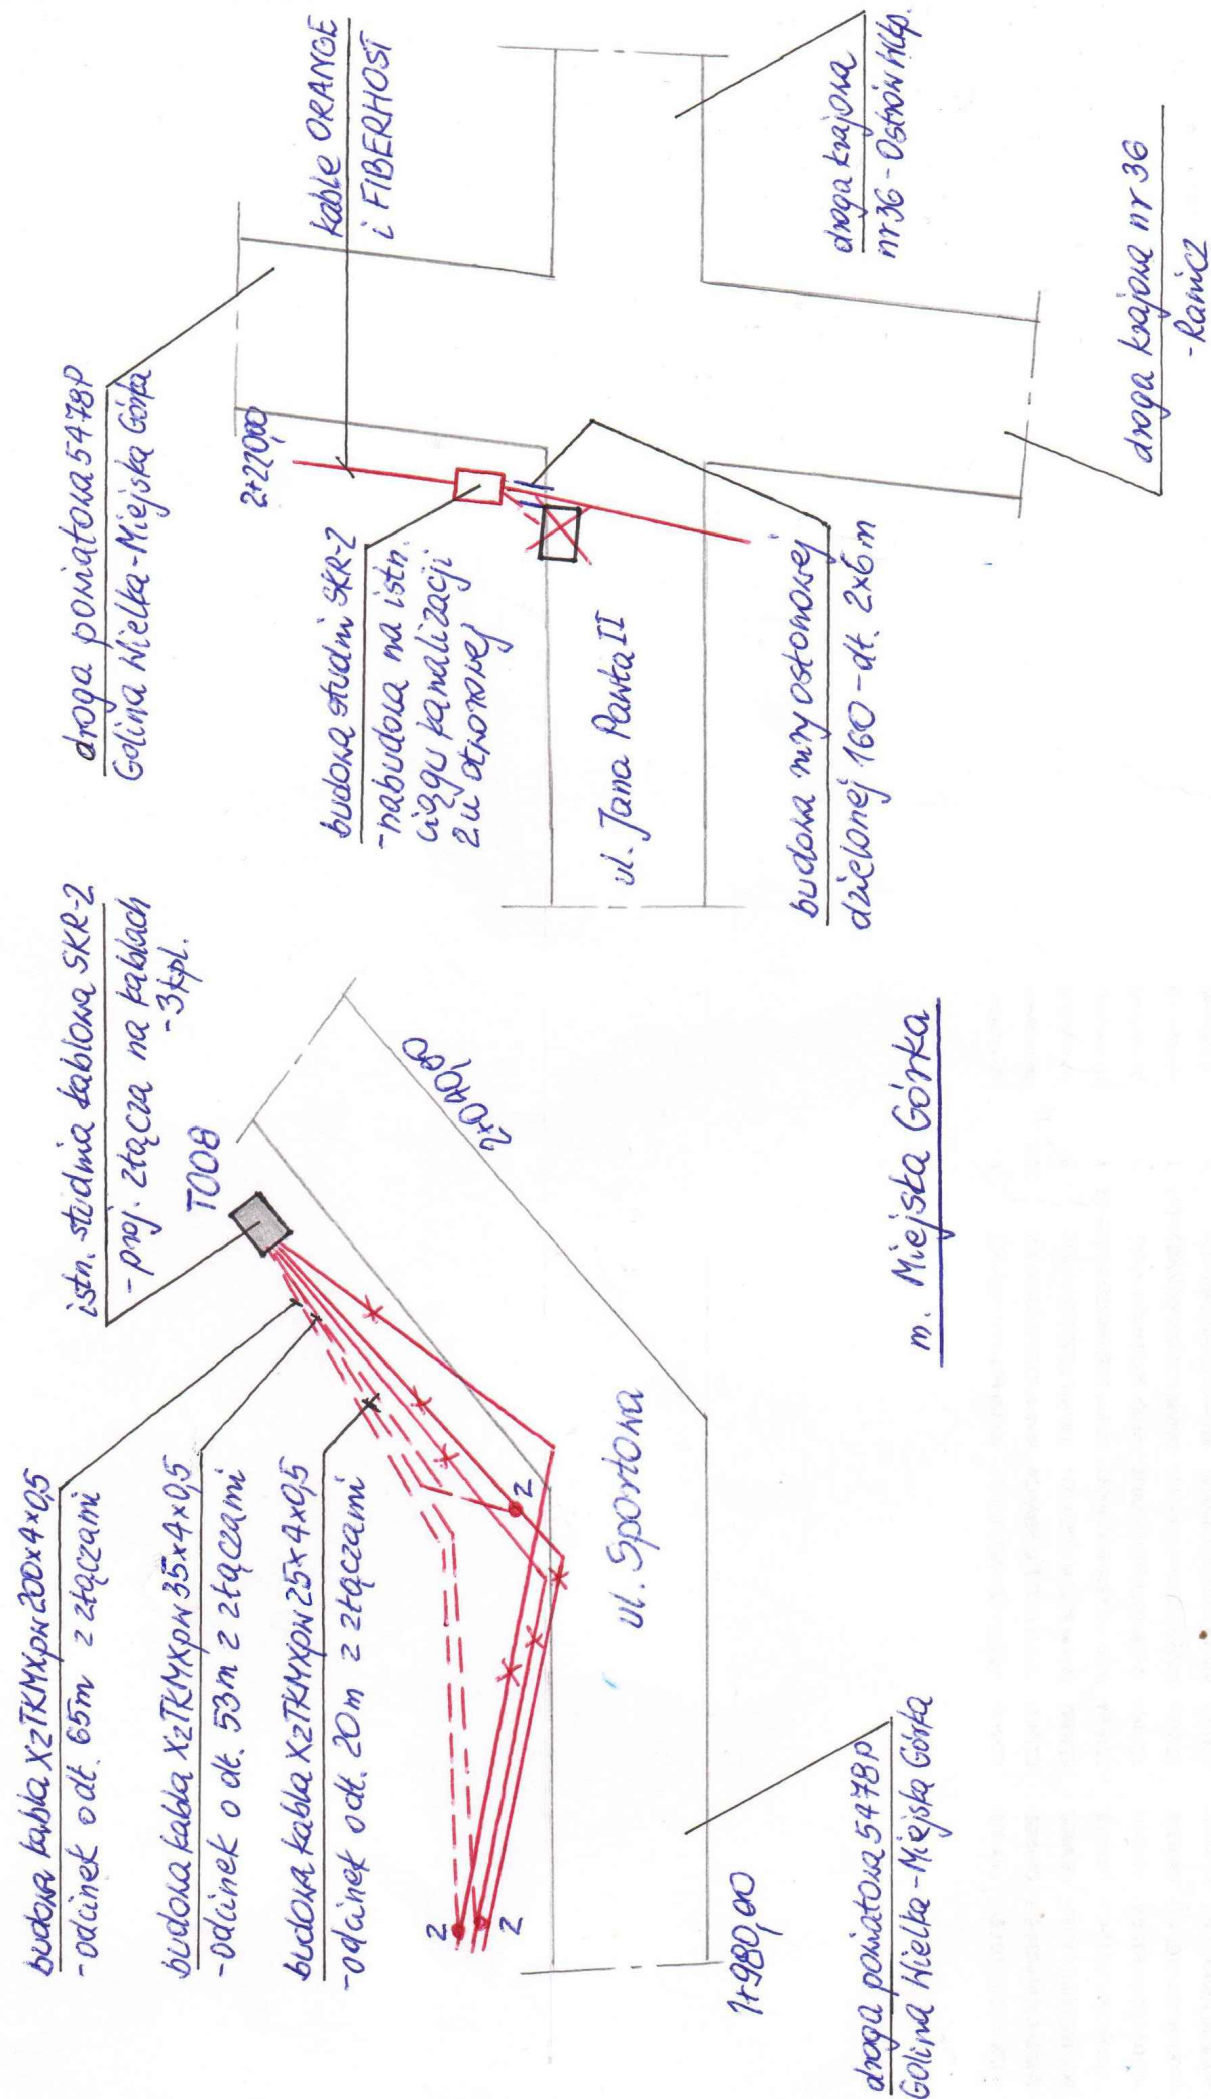 budowa kabla XzTKMXpw 200x4x0,5
-odcinek o dł. 65m z złączami
budowa kabla XzTKMXpw 35x4x0,5
-odcinek o dł. 53m z złączami
budowa kabla XzTKMXpw 25x4x0,5
-odcinek o dł. 20m z złączami
2
2
2
istn. studnia kablowa SKR-2
- proj. złącza na kablach
-3kpl.
T008
2+040,00
ul. Sportowa
1+980,00
droga powiatowa 5478P
Golina Wielka-Miejska Górka
m. Miejska Górka
droga powiatowa 5478P
Golina Wielka-Miejska Górka
2+220,00
kable ORANGE
i FIBERHOST
budowa studni SKR-2
-nabudowa na istn.
ciągu kanalizacji
2u otworowej
ul. Jana Pawła II
budowa rury osłonowej
dzielonej 160-dł. 2x6m
droga krajowa
nr 36 - Ostrów Wlkp.
droga krajowa nr 36
-Rawicz